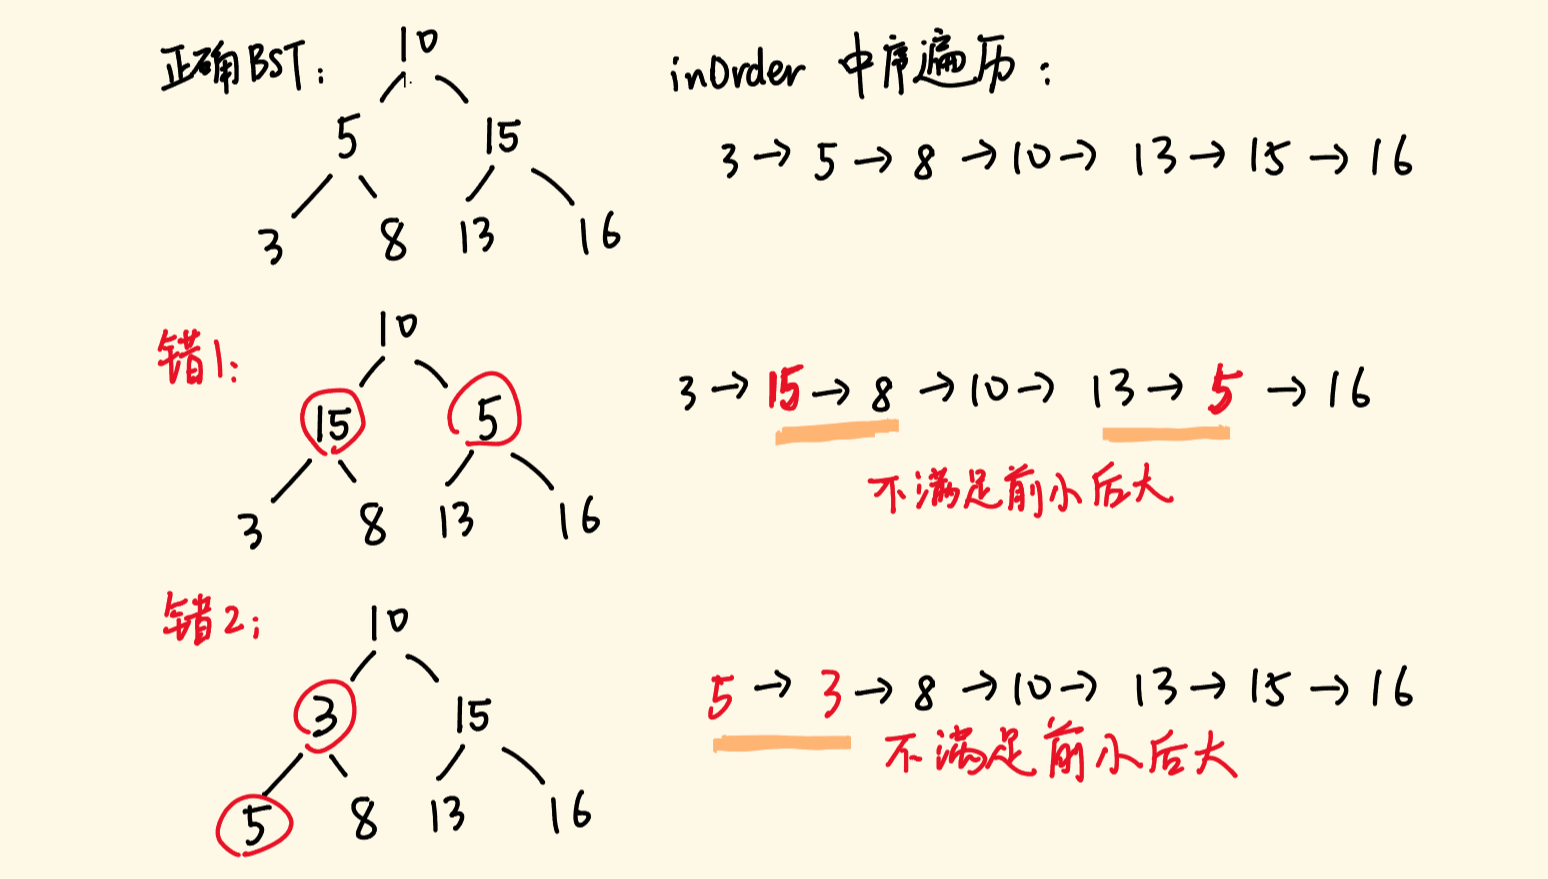 正确BST:
10
5 15
3 8 13 16
inOrder 中序遍历:
3 → 5 → 8 → 10 → 13 → 15 → 16
错1:
10
15 5
3 8 13 16
3 → 15 → 8 → 10 → 13 → 5 → 16
不满足前小后大
错2:
10
3 15
5 8 13 16
5 → 3 → 8 → 10 → 13 → 15 → 16
不满足前小后大